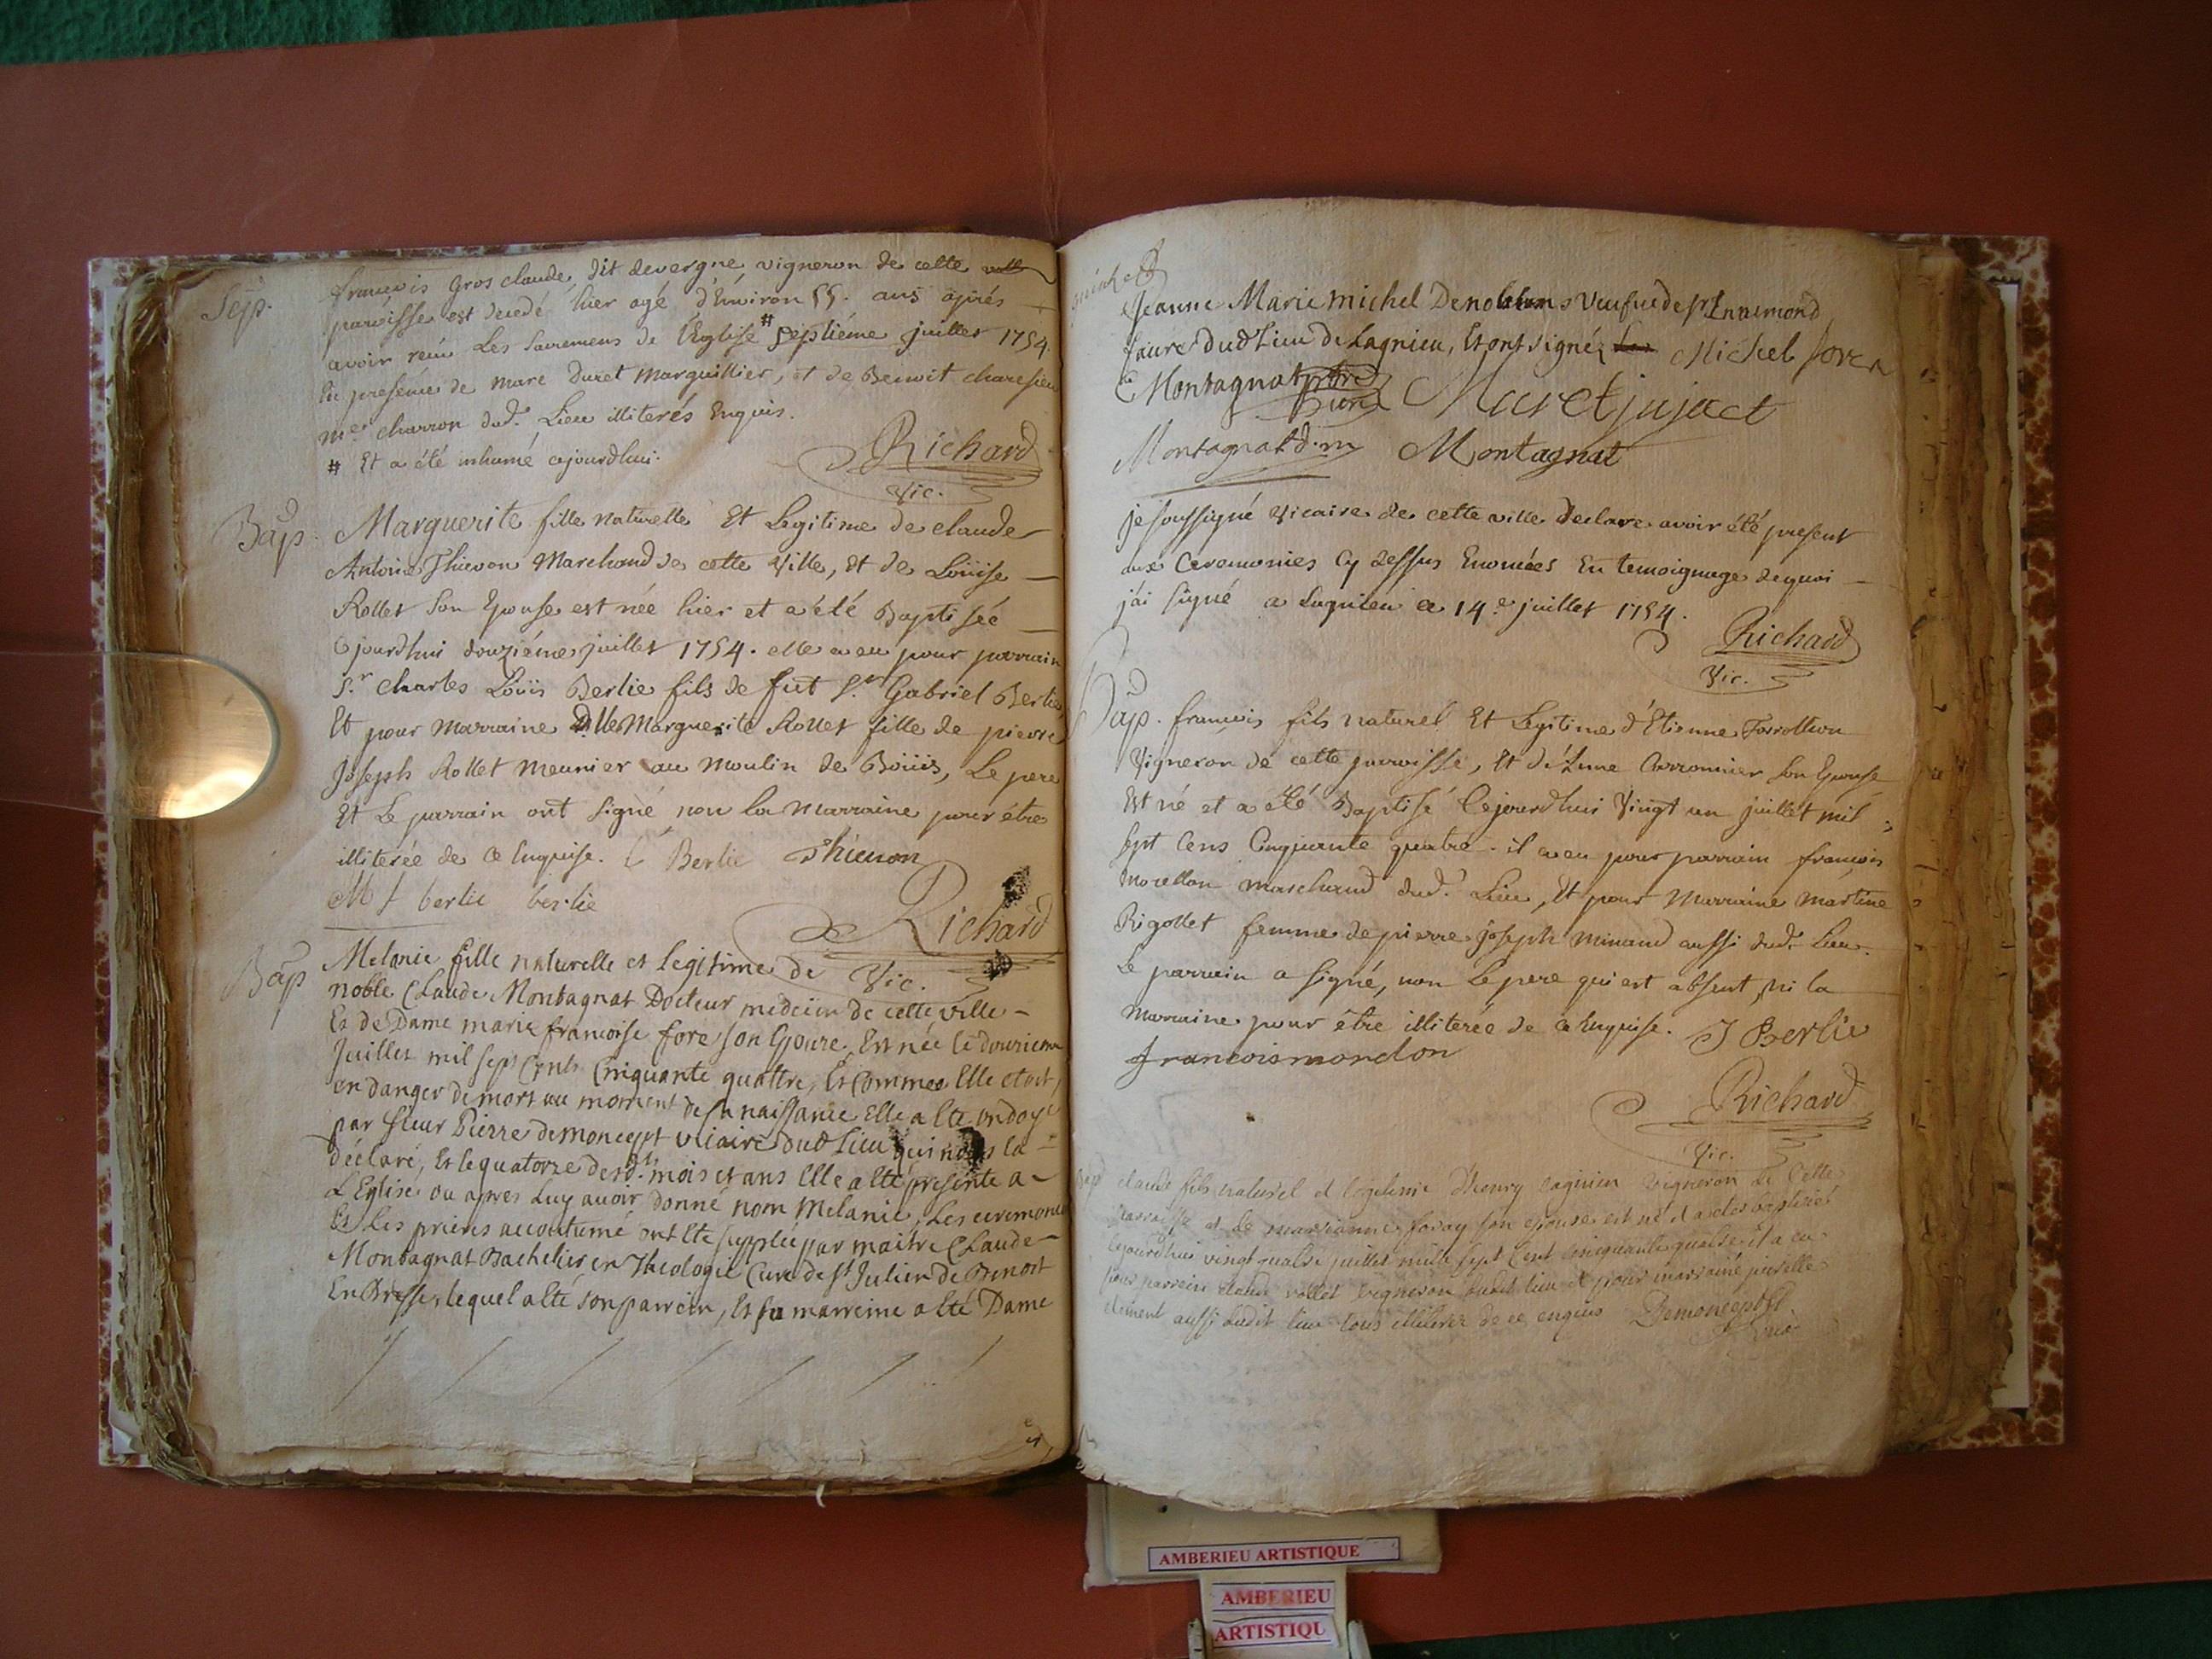 Sep.
francois Gros claude dit devergne, vigneron de cette
paroisse est decedé hier agé d'Environ 55. ans après
avoir reçu Les Sacremens de l'Eglise # septiéme juillet 1754
En presence de marc Duret Marguillier, et de Benoit
me charron dud. Lieu illiterés Enquis.
# Et a été inhumé cejourdhui.
Richard
Vic.
Bap. Marguerite fille naturelle Et Legitime de claude
Antoine Thievon Marchand de cette Ville, Et de Loüise
Rollet Son Epouse est née hier et a été Baptisée
Cejourdhui douziéme juillet 1754. elle a eu pour parrain
Sr charles Loüis Berlie fils de fut Sr Gabriel Berlie
Et pour Marraine Dlle Marguerite Rollet fille de pierre
Joseph Rollet Meunier au Moulin de Boüis, Le pere
Et Le parrain ont signé non la marraine pour être
illiterée de ce Enquise. C Berlie Thievon
berlie berlie
Richard
Vic.
Bap Melanie fille naturelle et legitime de
noble Claude Montagnat Docteur medecin de cette ville
Et de Dame marie francoise fore son Epouze, Est née le douzieme
Juillet mil sept Cents Cinquante quattre, Et Comme Elle etoit
en danger de mort au moment de sa naissance Elle a Eté ondoyé
par sieur Pierre demoncept viciaire dud Lieu qui nous la
déclaré, Et le quatorze desd. mois et ans Elle a Eté presenté a
L'Eglise ou apres Luy avoir donné nom Melanie, Les ceremonie
Et Les prieres accoutumé ont Eté supplée par maitre Claude
Montagnat Bachelier en Theologie Curé de St Julien de
En Bresse, lequel a Eté son parrein, Et sa marreine a Eté Dame
Jeanne Marie michel Veufve de sr Innemond
faure dud Lieu de Lagnieu, Et ont signéz Michel fore
Montagnat Maret jujact
Montagnat d.m Montagnat
je soussigné Vicaire de cette ville declare avoir été present
aux Ceremonies cy dessus Enoncées En temoignage dequoi
j'ai signé a Lagnieu ce 14e juillet 1754.
Richard
Vic.
Bap. francois fils naturel Et Legitime d'Etienne
Vigneron de cette parroisse, Et d'Anne son Epouse
Est né et a été Baptisé Cejourdhui Vingt un juillet mil
sept Cens Cinquante quatre. il a eu pour parrain francois
marchand dud. Lieu, Et pour Marraine Martine
Rigollet femme de pierre joseph Minand aussi dud. Lieu.
Le parrain a signé, non Le pere qui est absent, Ni la
Marraine pour être illiterée de ce Enquise. J Berlie
francois
Richard
Vic.
Bap claude fils naturel et legitime D'henry vigneron de Cette
parroisse et de marrianne son epouse est né et a eté baptisé
cejourd'hui vingt quatre juillet mille sept Cent cinquante quatre il a eu
pour parrein claude vigneron dudit lieu et pour marraine
aussi dudit lieu tous illiterez de ce enquis Demoncept
Vic
AMBERIEU ARTISTIQUE
AMBERIEU
ARTISTIQU